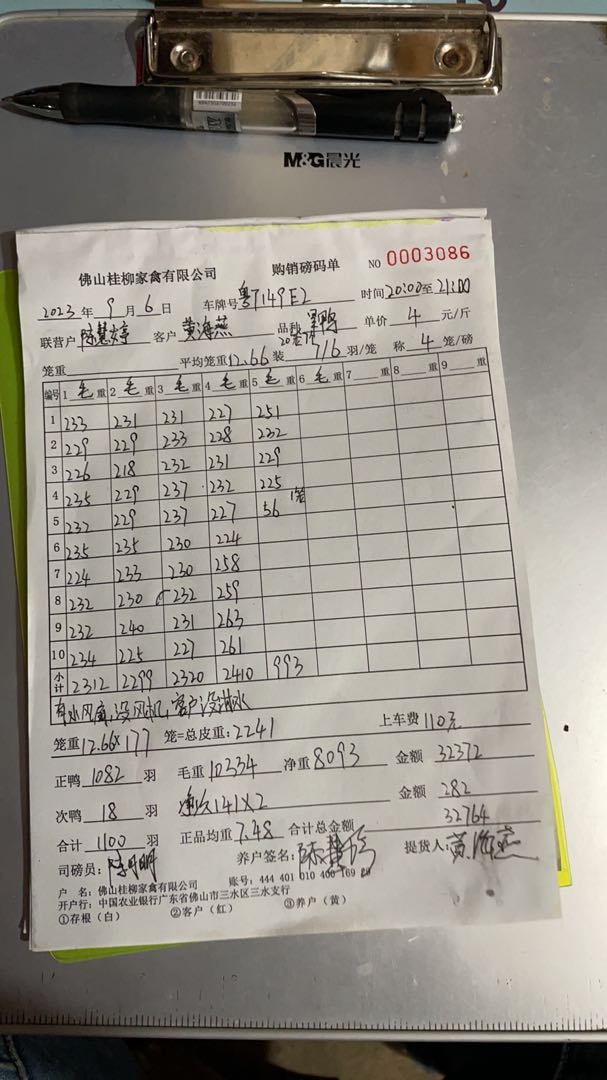 M&G晨光
佛山桂柳家禽有限公司 购销磅码单 NO 0003086
2023 年 9 月 6 日 车牌号 粤 7149E2 时间 20:00 至 21:00
联营户 陈慧婷 客户 黄海燕 品种 单价 4 元/斤
笼重 平均笼重 12.66 装 7/6 羽/笼 称 4 笼/磅
编号 1 毛 重 2 毛 重 3 毛 重 4 毛 重 5 毛 重 6 毛 重 7 重 8 重 9 重
1 233 231 231 227 251
2 229 229 233 228 232
3 226 218 232 231 229
4 235 229 237 232 225
5 232 229 237 227 56 1笼
6 235 235 230 224
7 224 233 230 258
8 232 230 232 259
9 232 240 231 263
10 234 225 227 261
小计 2312 2299 2320 2410 993
没风机,客户没淋水
笼重 12.66×177 笼=总皮重: 2241 上车费 110元
正鸭 1082 羽 毛重 10334 净重 8093 金额 32372
次鸭 18 羽 141×2 金额 282
合计 1100 羽 正品均重 7.48 合计总金额 32764
司磅员: 养户签名: 提货人: 黄海燕
户 名: 佛山桂柳家禽有限公司 账号: 444 401 010 400 169
开户行: 中国农业银行广东省佛山市三水区三水支行
①存根(白) ②客户(红) ③养户(黄)